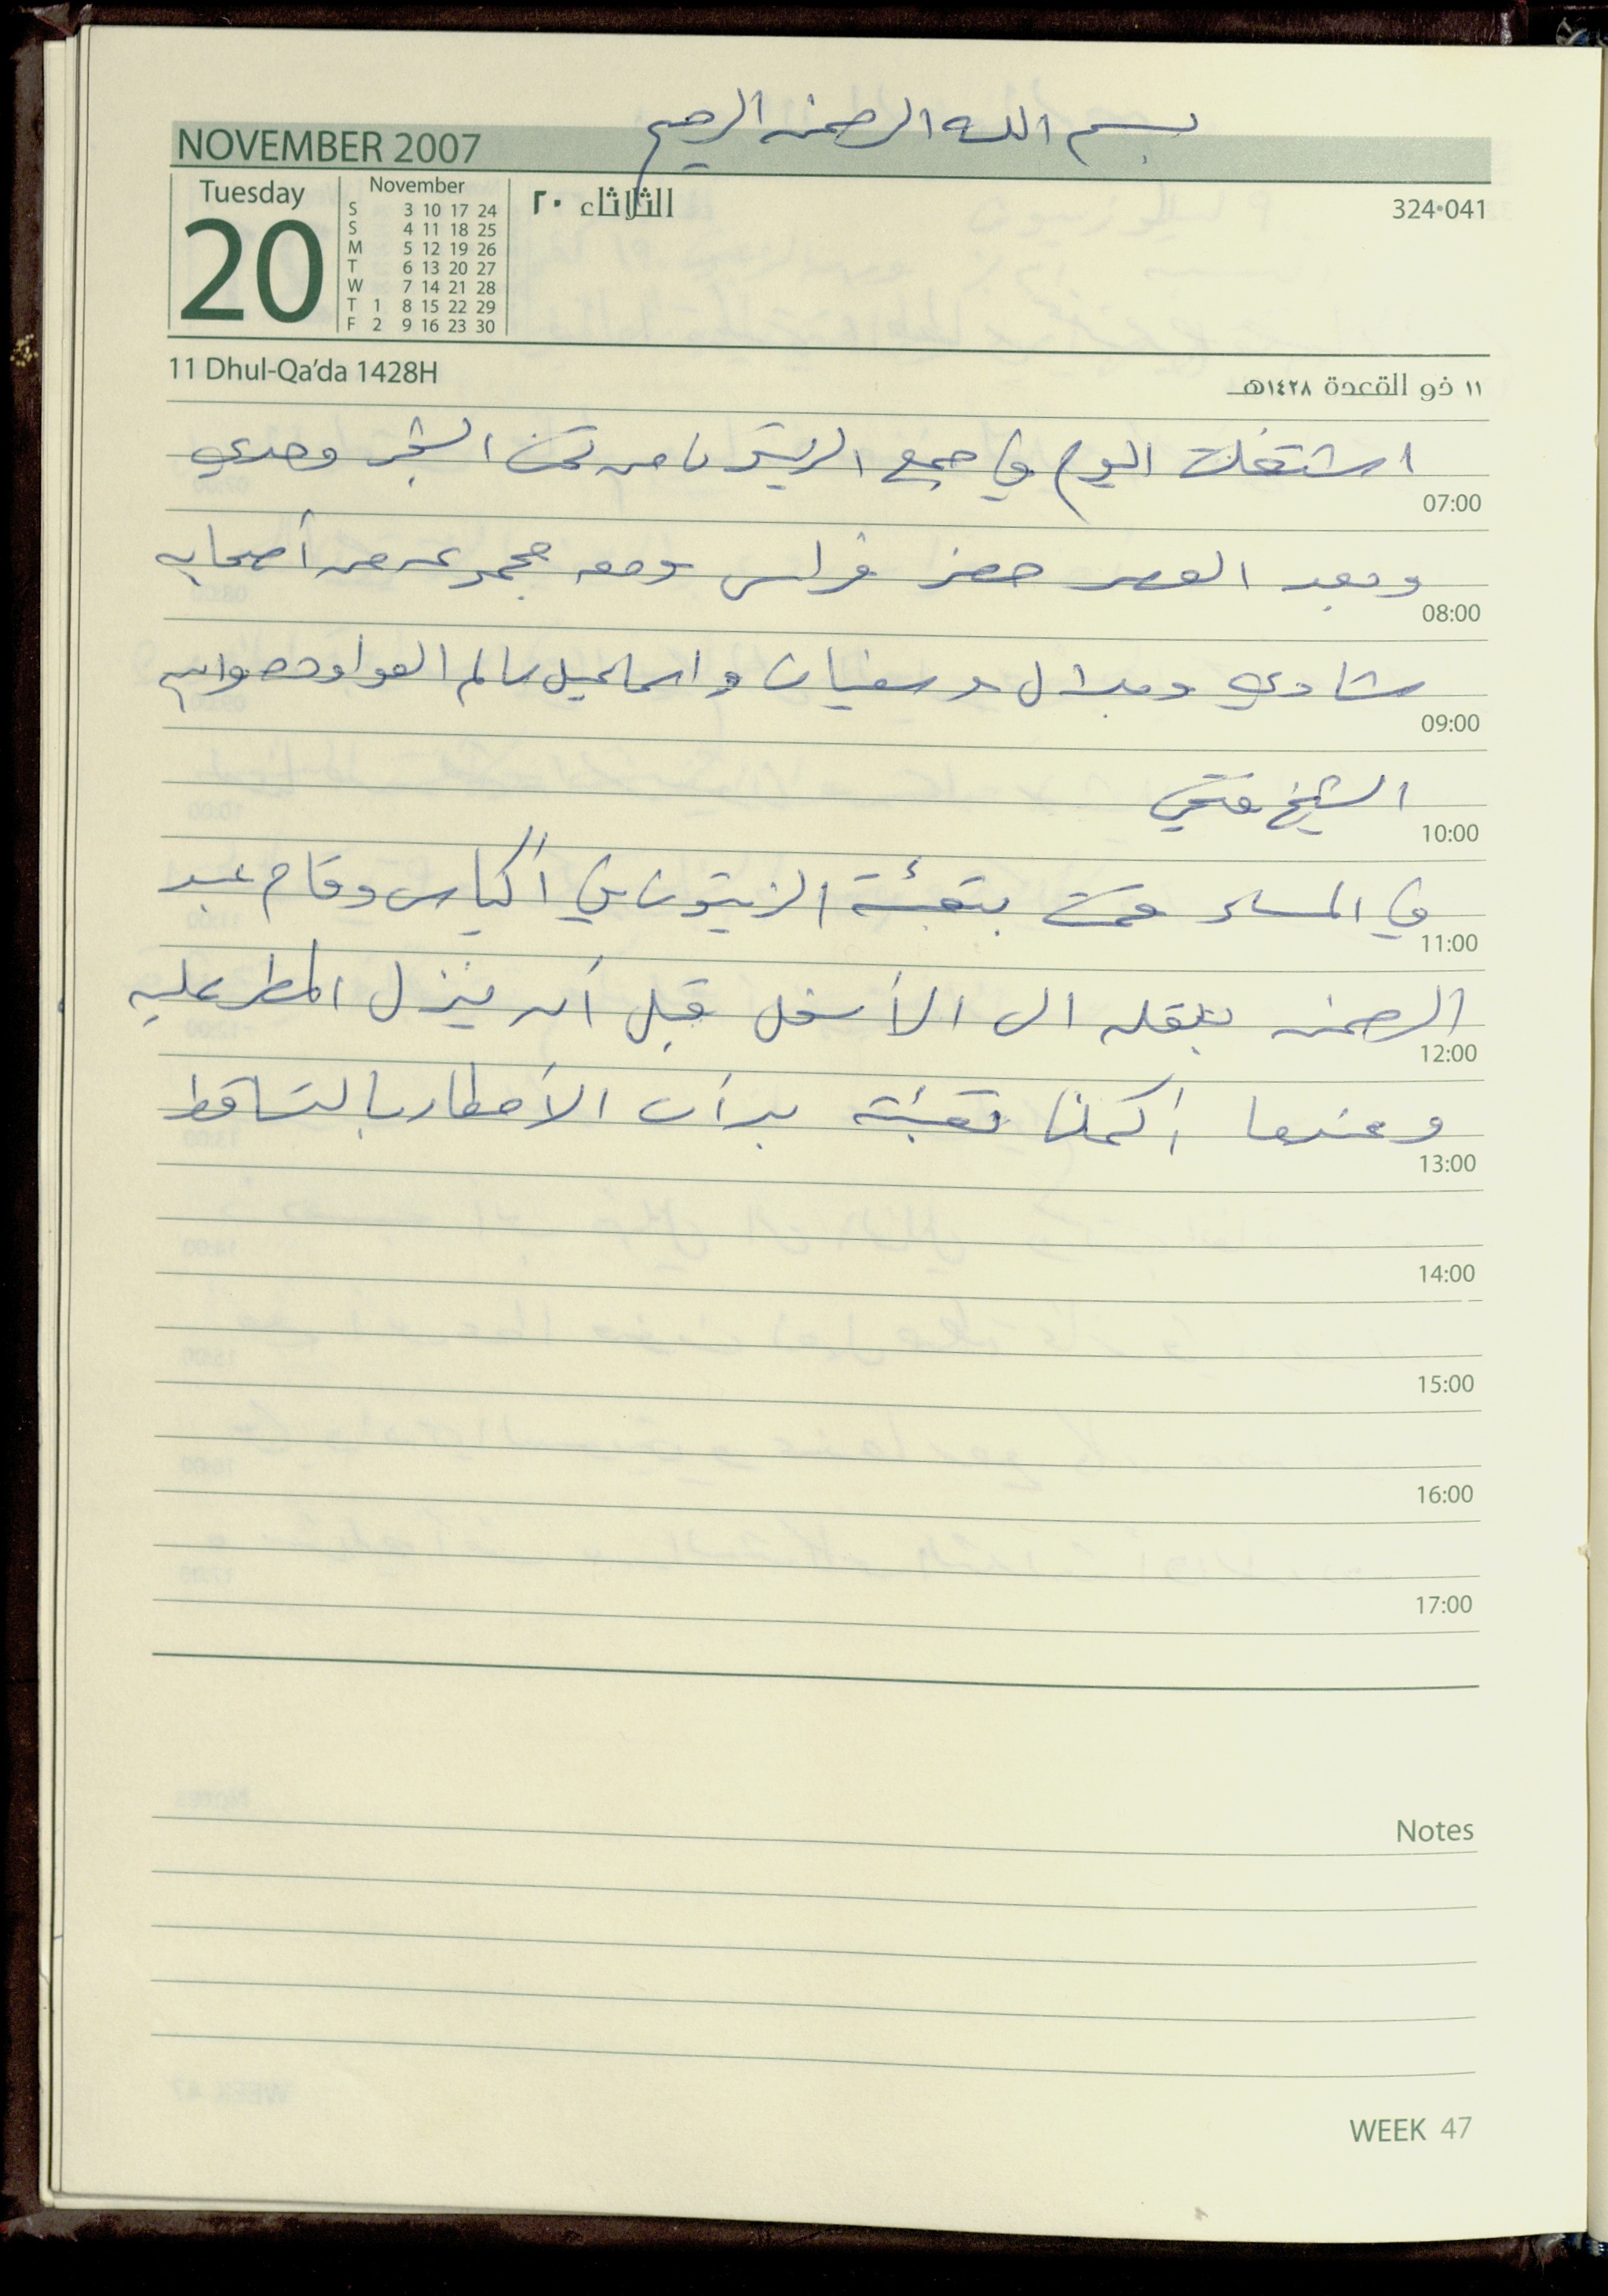 بسم الله الرحمن الرحيم
NOVEMBER 2007
Tuesday
20
November
S 3 10 17 24
S 4 11 18 25
M 5 12 19 26
T 6 13 20 27
W 7 14 21 28
T 1 8 15 22 29
F 2 9 16 23 30
الثلاثاء ٢٠
324•041
11 Dhul-Qa'da 1428H
١١ ذو القعدة ١٤٢٨هـ
اشتغلت اليوم في جمع الزيتون من تحت الشجر وحدي
07:00
وبعد العصر حضر فراس ومعه مجموعه من أصحابه
08:00
شادي وبلال وسفيان واسماعيل سالم العواوده
09:00
الشيخ فتحي
10:00
في المساء قمت بتعبئة الزيتون في أكياس وقام عبد
11:00
الرحمن بنقله الى الأسفل قبل أن ينزل المطر عليه
12:00
وعندما أكملنا تعبئة بدأت الأمطار بالتساقط
13:00
14:00
15:00
16:00
17:00
Notes
WEEK 47